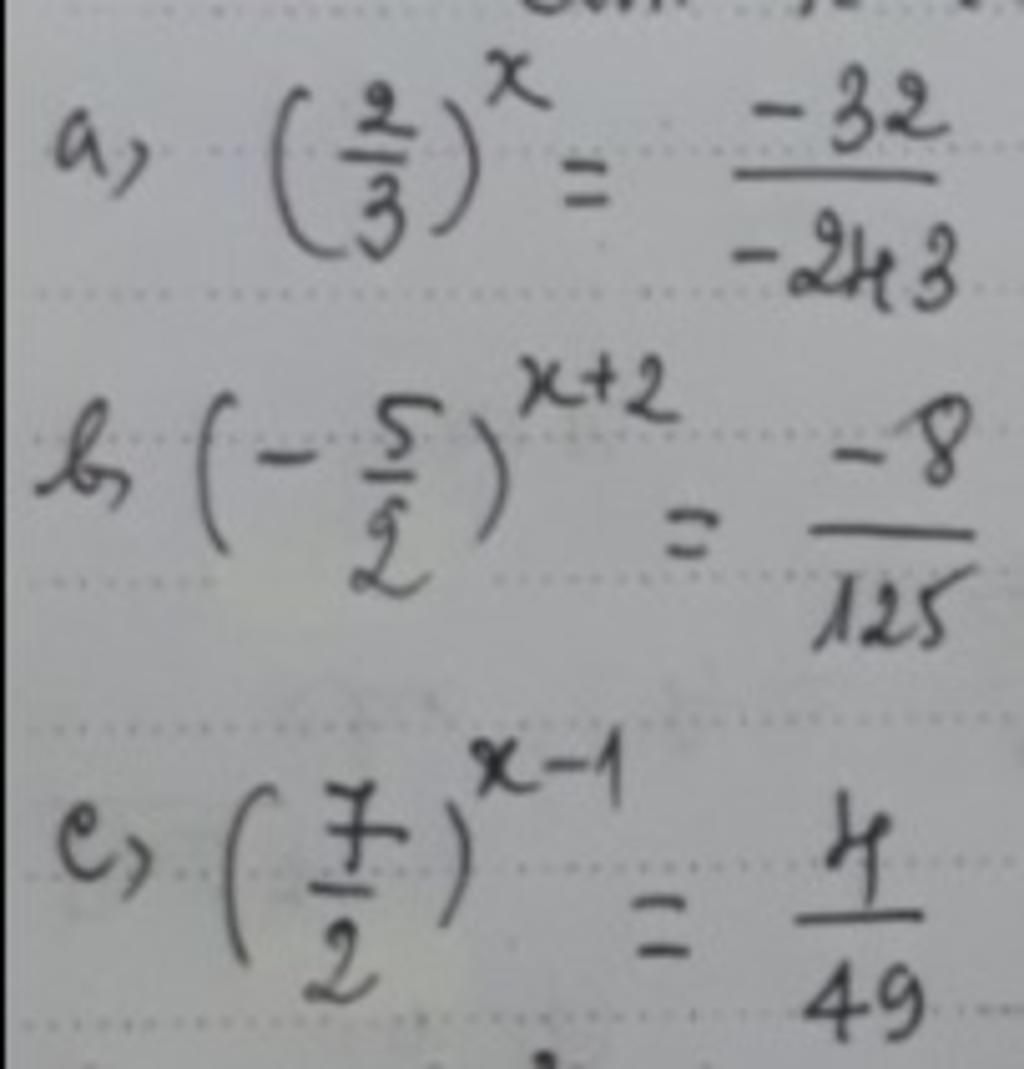 a, (2/3)^x = -32/-243
b, (-5/2)^{x+2} = -8/125
c, (7/2)^{x-1} = 4/49